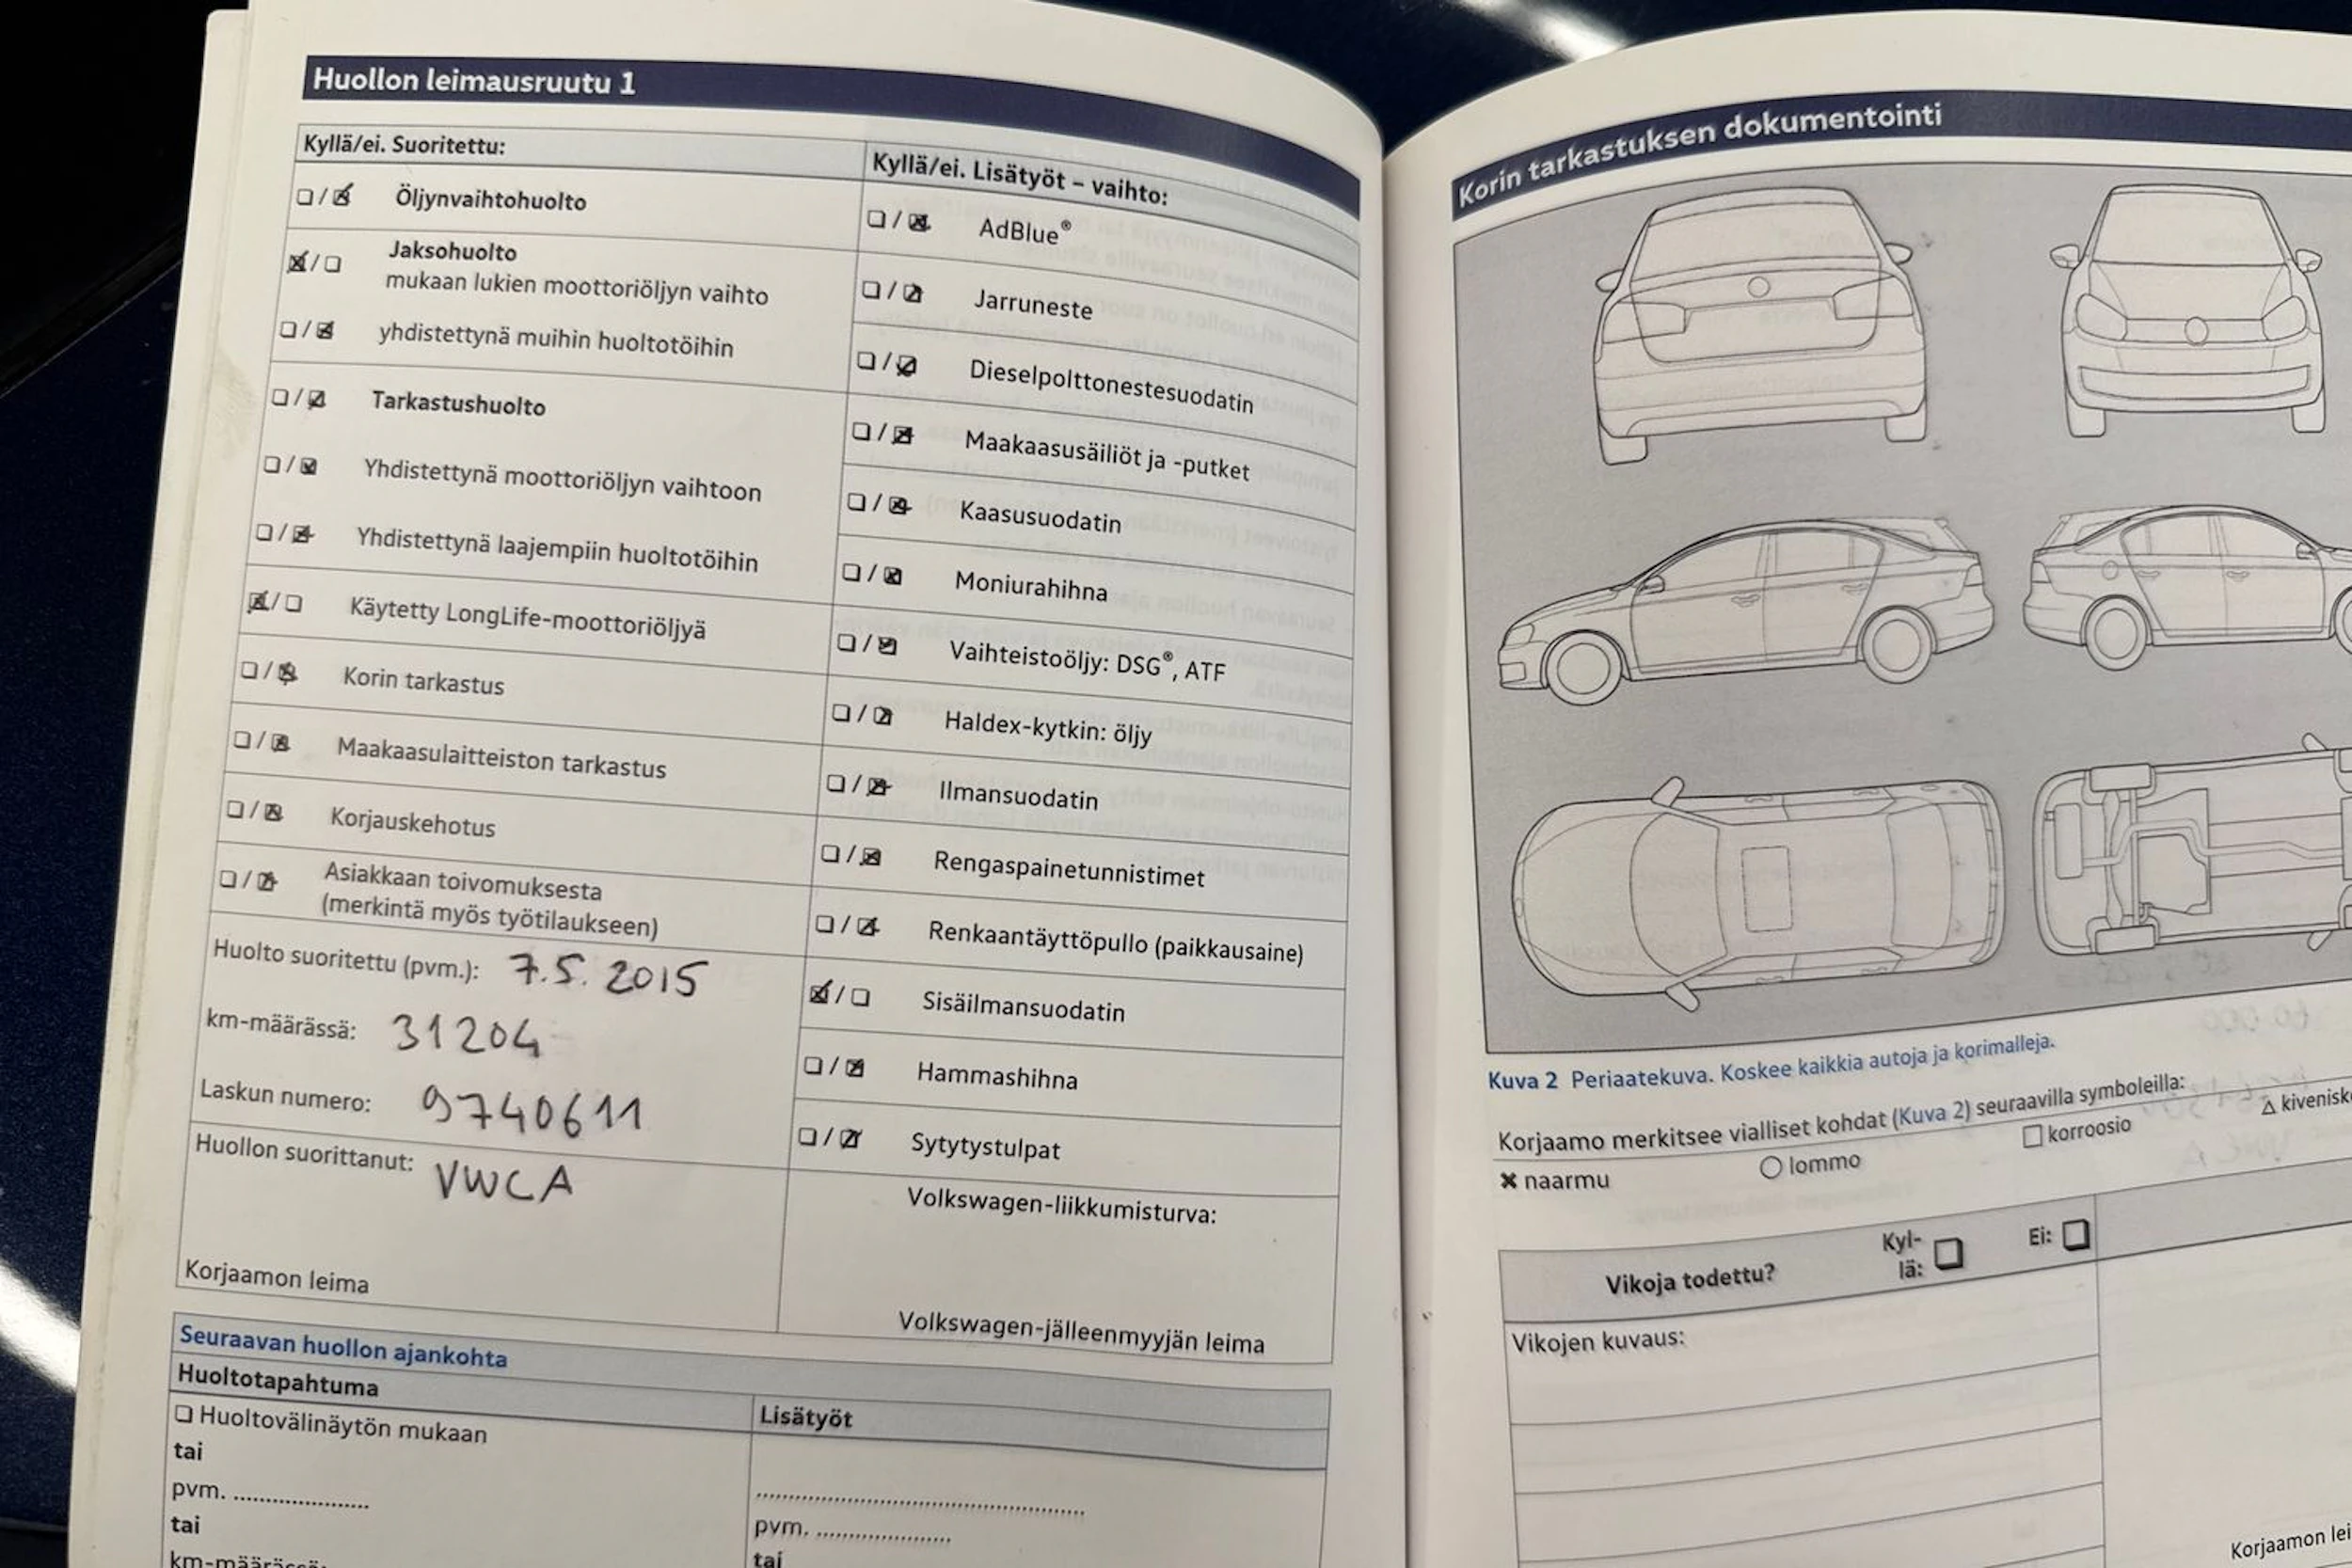 Huollon leimausruutu 1
Kyllä/ei. Suoritettu:
☐ / ☒ Öljynvaihtohuolto
☒ / ☐ Jaksohuolto
mukaan lukien moottoriöljyn vaihto
☐ / ☒ yhdistettynä muihin huoltotöihin
☐ / ☒ Tarkastushuolto
☐ / ☒ Yhdistettynä moottoriöljyn vaihtoon
☐ / ☒ Yhdistettynä laajempiin huoltotöihin
☒ / ☐ Käytetty LongLife-moottoriöljyä
☐ / ☒ Korin tarkastus
☐ / ☒ Maakaasulaitteiston tarkastus
☐ / ☒ Korjauskehotus
☐ / ☒ Asiakkaan toivomuksesta
(merkintä myös työtilaukseen)
Huolto suoritettu (pvm.): 7.5.2015
km-määrässä: 31204
Laskun numero: 9740611
Huollon suorittanut: VWCA
Korjaamon leima
Kyllä/ei. Lisätyöt – vaihto:
☐ / ☒ AdBlue®
☐ / ☒ Jarruneste
☐ / ☒ Dieselpolttonestesuodatin
☐ / ☒ Maakaasusäiliöt ja -putket
☐ / ☒ Kaasusuodatin
☐ / ☒ Moniurahihna
☐ / ☒ Vaihteistoöljy: DSG®, ATF
☐ / ☒ Haldex-kytkin: öljy
☐ / ☒ Ilmansuodatin
☐ / ☒ Rengaspainetunnistimet
☐ / ☒ Renkaantäyttöpullo (paikkausaine)
☒ / ☐ Sisäilmansuodatin
☐ / ☒ Hammashihna
☐ / ☒ Sytytystulpat
Volkswagen-liikkumisturva:
Volkswagen-jälleenmyyjän leima
Seuraavan huollon ajankohta
Huoltotapahtuma
☐ Huoltovälinäytön mukaan
tai
pvm. ....................
tai
km-määrässä:
Lisätyöt
..................................................
pvm. ....................
tai
Korin tarkastuksen dokumentointi
Kuva 2 Periaatekuva. Koskee kaikkia autoja ja korimalleja.
Korjaamo merkitsee vialliset kohdat (Kuva 2) seuraavilla symboleilla:
✖ naarmu ○ lommo □ korroosio △ kivenisk
Vikoja todettu? Kyl-
lä: ☐ Ei: ☐
Vikojen kuvaus:
Korjaamon lei